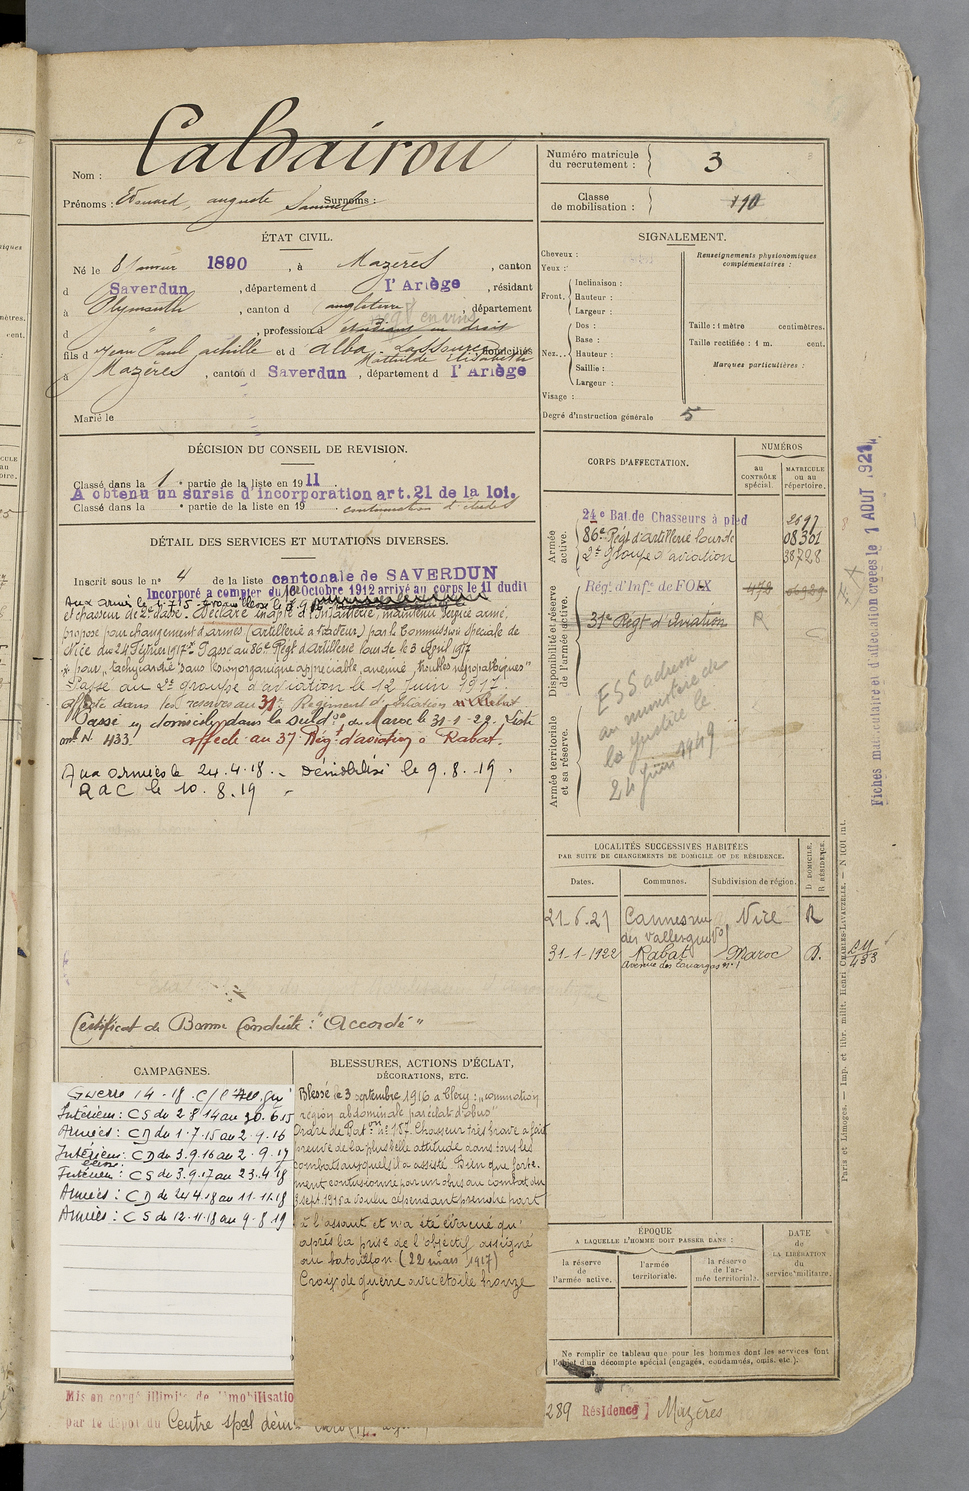 Caldairou
Nom :
Prénoms : Edouard, auguste Samuel Surnoms :
Numéro matricule du recrutement : 3
Classe de mobilisation : 1910
ÉTAT CIVIL.
Né le 8 janvier 1890, à Mazères, canton
d Saverdun, département d l'Ariège, résidant
à Plymouth, canton d angleterre, département
d " , profession d étudiant en droit
négt en vins
fils d Jean Paul achille et d alba Lassourre domiciliés
Mathilde Elisabeth
à Mazères, canton d Saverdun, département d l'Ariège
Marié le
SIGNALEMENT.
Cheveux :
Yeux :
Front.
Inclinaison :
Hauteur :
Largeur :
Nez...
Dos :
Base :
Hauteur :
Saillie :
Largeur :
Visage :
Degré d'instruction générale 5
Renseignements physionomiques
complémentaires :
Taille : 1 mètre centimètres.
Taille rectifiée : 1 m. cent.
Marques particulières :
DÉCISION DU CONSEIL DE REVISION.
Classé dans la 1e partie de la liste en 1911
A obtenu un sursis d'incorporation art. 21 de la loi.
Classé dans la e partie de la liste en 19 continuation d'études
DÉTAIL DES SERVICES ET MUTATIONS DIVERSES.
Inscrit sous le n° 4 de la liste cantonale de SAVERDUN
Incorporé a compter du 10 Octobre 1912 arrivé au corps le 11 dudit
Aux armées le 1.7.15
et chasseur de 2e classe. Déclaré inapte à l'Infanterie, maintenu service armé,
proposé pour changement d'armes (artillerie à tracteur) par la Commission spéciale de
Nice du 24 Février 1917. Passé au 86e Régt d'artillerie lourde le 3 April 1917
pour "tachycardie sans lésion organique appréciable, anémie, troubles névropathiques"
Passé au 2e groupe d'aviation le 12 Juin 1917.
affecté dans les réserves au 31e Régiment d'aviation
Passé en domicile dans la Subd. on du Maroc le 31-1-22. Liste
N° 433. affecté au 37 Rég. d'aviation à Rabat.
Aux armées le 24.4.18 - Démobilisé le 9.8.19.
RaC le 10.8.19 -
Certificat de Bonne Conduite : "Accordé"
CORPS D'AFFECTATION.
NUMÉROS
au CONTRÔLE spécial.
MATRICULE ou au répertoire.
Armée active.
24e Bat. de Chasseurs à pied 2697
86e Régt d'artillerie lourde 08361
2e Groupe d'aviation 38728
Disponibilité et réserve de l'armée active.
Rég. d'Inf. de FOIX
31e Régt d'Aviation R
Armée territoriale et sa réserve.
ESS adresse
au ministère de
la justice le
24 Juin 1949
Fiches matriculaire et d'affectation créées le 1 AOUT 1921
LOCALITÉS SUCCESSIVES HABITÉES
PAR SUITE DE CHANGEMENTS DE DOMICILE OU DE RÉSIDENCE.
Dates. Communes. Subdivision de région. D. DOMICILE. R. RÉSIDENCE.
21-6-21 Cannes rue Nice R
des Vallergues
31-1-1922 Rabat Maroc D.
LM
433
CAMPAGNES.
Guerre 14-18 c/l'All.gne
Intérieur : CS du 2 8 14 au 30.6.15
Armées : CD du 1.7.15 au 2.9.16
Intérieur : CD du 3.9.16 au 2.9.17
Intérieur : CS du 3.9.17 au 23.4.18
Armées : CD du 24.4.18 au 11.11.18
Armées : CS du 12.11.18 au 9.8.19
BLESSURES, ACTIONS D'ÉCLAT,
DÉCORATIONS, ETC.
Blessé le 3 septembre 1916 à Cléry : "commotion
région abdominale par éclat d'obus"
Ordre du Bat.on n° 157. Chasseur très brave a fait
preuve de la plus belle attitude dans tous les
combats auxquels il a assisté. Bien que forte-
ment contusionné par un obus au combat du
3 sept. 1916 a voulu cependant prendre part
à l'assaut et n'a été évacué qu'
après la prise de l'objectif assigné
au bataillon (22 mars 1917)
Croix de guerre avec étoile bronze
ÉPOQUE
A LAQUELLE L'HOMME DOIT PASSER DANS :
la réserve de l'armée active.
l'armée territoriale.
la réserve de l'armée territoriale.
DATE de LA LIBÉRATION du service militaire.
Ne remplir ce tableau que pour les hommes dont les services font
l'objet d'un décompte spécial (engagés, condamnés, omis, etc.).
Paris et Limoges. — Imp. et libr. milit. Henri CHARLES-LAVAUZELLE.
Mis en congé illimité de démobilisatio
par le dépôt du Centre spal dém
289 Résidence Mazères